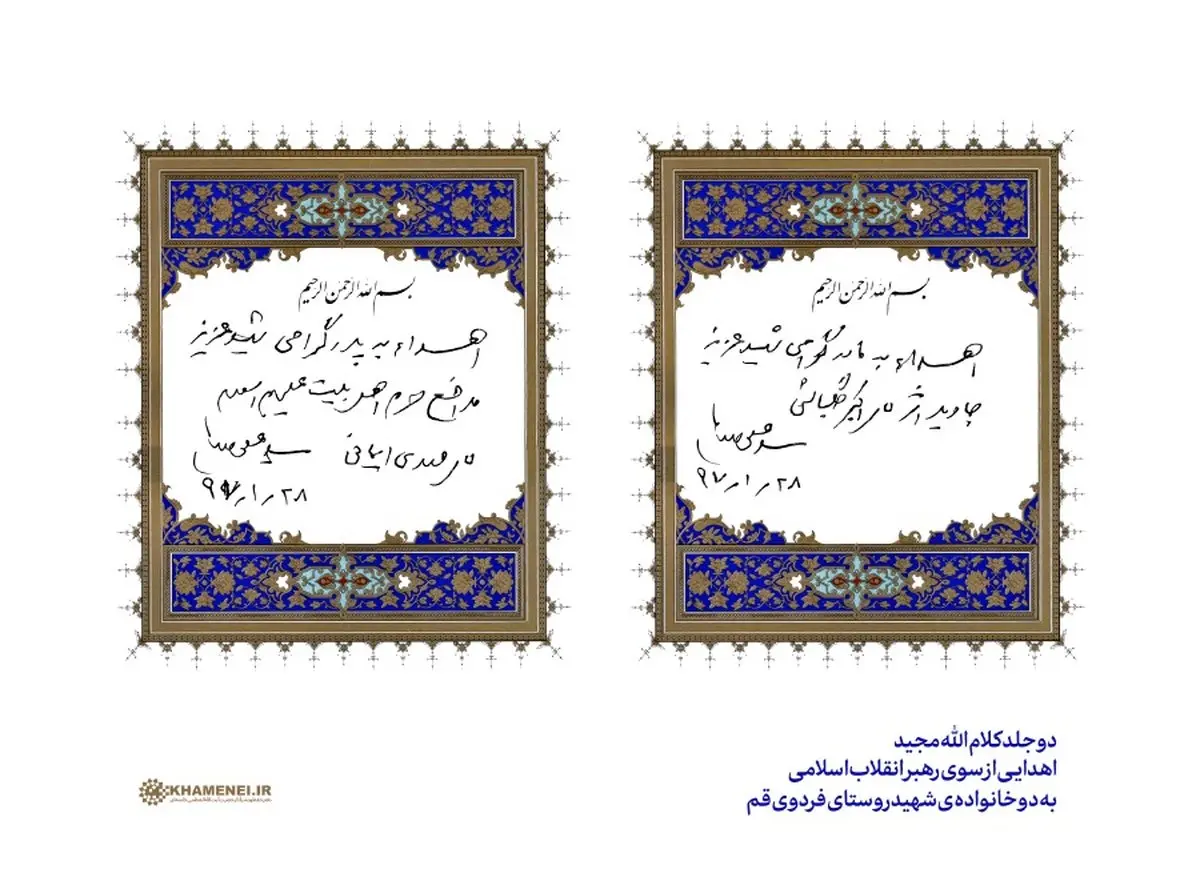 بسم الله الرحمن الرحیم
اهداء به مادر گرامی شهید عزیز
جاوید اثر اکبر
۹۷/۱/۲۸
بسم الله الرحمن الرحیم
اهداء به پدر گرامی شهید عزیز
مدافع حرم اهل بیت علیهم السلام
مهدی ایمانی
۹۷/۱/۲۸
دو جلد کلام الله مجید
اهدایی از سوی رهبر انقلاب اسلامی
به دو خانواده‌ی شهید روستای فردوی قم
KHAMENEI.IR